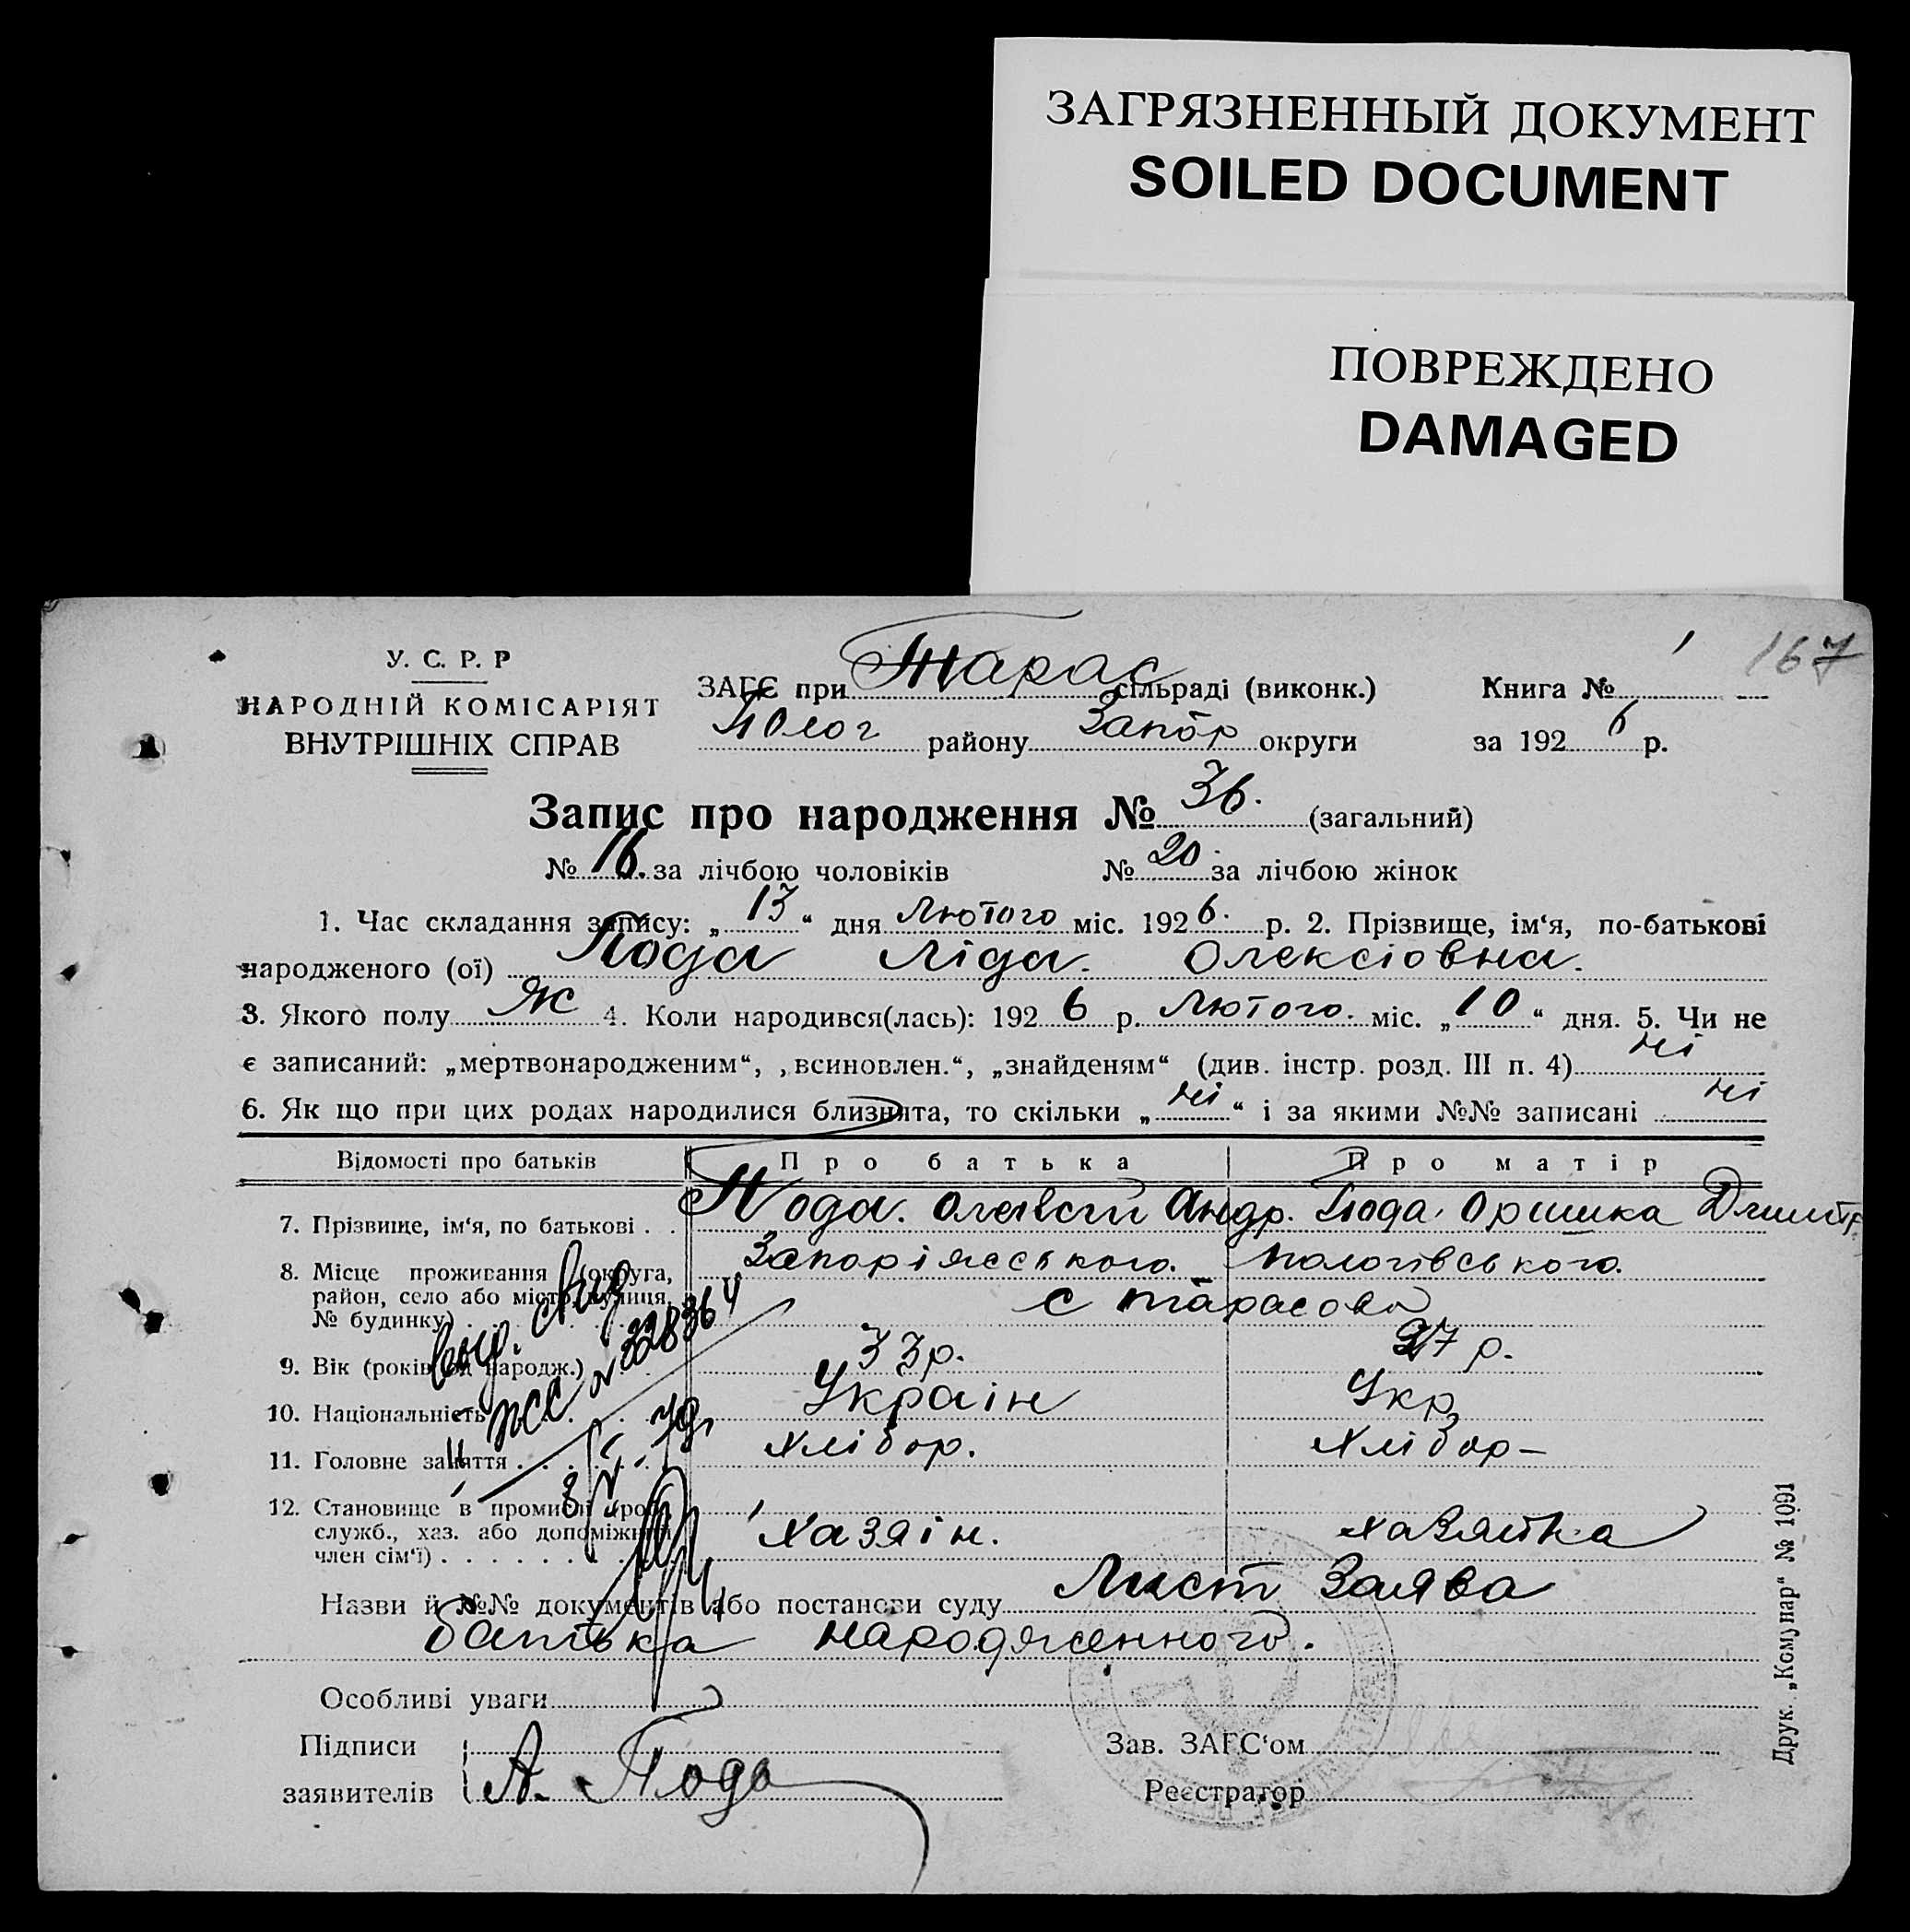 ЗАГРЯЗНЕННЫЙ ДОКУМЕНТ
SOILED DOCUMENT
ПОВРЕЖДЕНО
DAMAGED
167
У. С. Р. Р
НАРОДНІЙ КОМІСАРІЯТ
ВНУТРІШНІХ СПРАВ
ЗАГС при Тарас сільраді (виконк.) Книга №
Полог району Запор округи за 1926 р.
Запис про народження № 36. (загальний)
№ 16. за лічбою чоловіків № 20. за лічбою жінок
1. Час складання запису: „13“ дня Лютого міс. 1926. р. 2. Прізвище, ім‘я, по-батькові
народженого (ої) Пода Ліда. Олексіовна.
3. Якого полу Ж 4. Коли народився(лась): 1926 р. Лютого. міс. „10“ дня. 5. Чи не
є записаний: „мертвонародженим“, „всиновлен.“, „знайденям“ (див. інстр. розд. III п. 4) ні
6. Як що при цих родах народилися близнята, то скільки „ні“ і за якими №№ записані ні
Відомості про батьків Про батька Про матір
7. Прізвище, ім‘я, по батькові . . Пода. Олексій Андр. Пода. Оришка Дмитр.
8. Місце проживання (округа, Запоріжського. Пологівського.
район, село або місто, вулиця, с Тарасовк
№ будинку) . .
9. Вік (років від народж.) 33р. 27 р.
10. Національність Україн Укр
11. Головне заняття . . . Хлібор. Хлібор-
12. Становище в промислі (роб.,
служб., хаз. або допоміжний Хазяін. хазяйка
член сім‘ї) . . . . . . . .
выд. свид
II ЖС № 328364
Назви й №№ документів або постанови суду Лист Заява
батька народженного.
Особливі уваги
Підписи
заявителів А. Пода
Зав. ЗАГС‘ом
Реєстратор
Друк. „Комунар“ № 1091